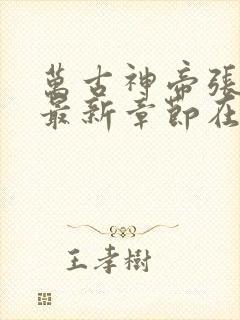 萬古神帝張
最新章節在
王孝樹